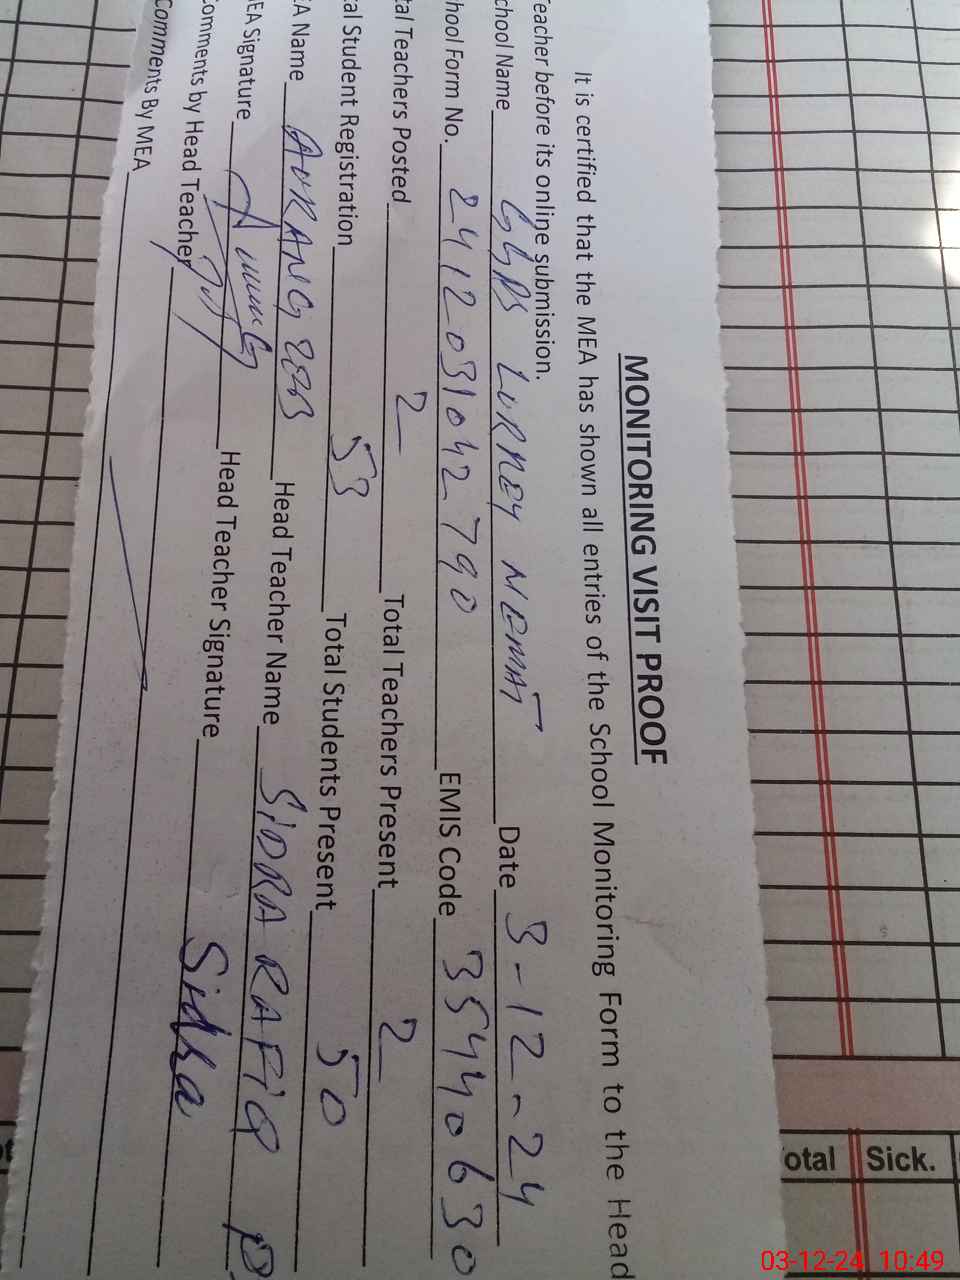 MONITORING VISIT PROOF
It is certified that the MEA has shown all entries of the School Monitoring Form to the Head
Teacher before its online submission.
chool Name GGPS LURREY NEMAT Date 3-12-24
hool Form No. 2412031042790 EMIS Code 35440630
tal Teachers Posted 2 Total Teachers Present 2
tal Student Registration 53 Total Students Present 50
EA Name AURANG ZEB Head Teacher Name SIDRA RAFIQ
MEA Signature Head Teacher Signature Sidra
Comments by Head Teacher
Comments By MEA
otal Sick.
03-12-24 10:49